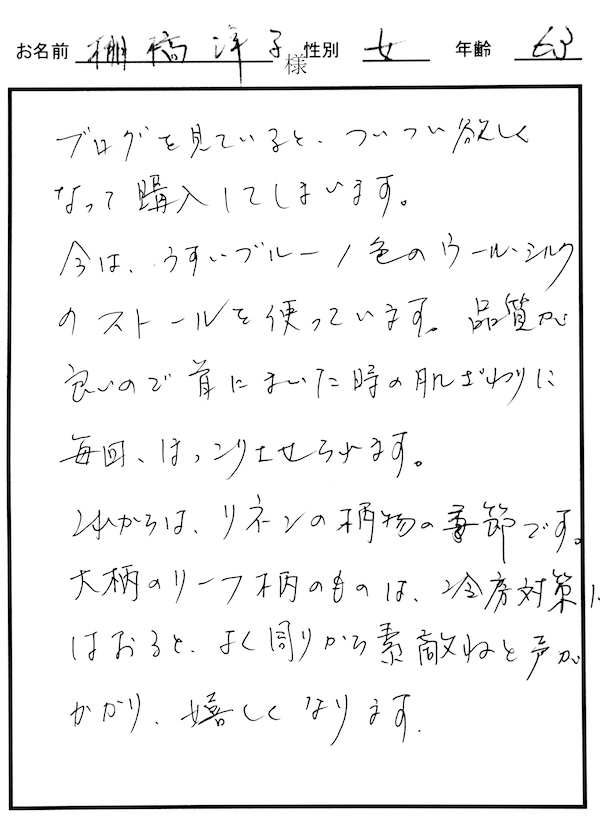 お名前 棚橋 洋子 様 性別 女 年齢 63
ブログを見ていると、ついつい欲しく
なって購入してしまいます。
今は、うすいブルー1色のウール・シルク
のストールを使っています。品質が
良いので首にまいた時の肌ざわりに
毎回、ほっこりさせられます。
これからは、リネンの柄物の季節です。
大柄のリーフ柄のものは、冷房対策に
はおると、よく周りから素敵ねと声が
かかり、嬉しくなります。